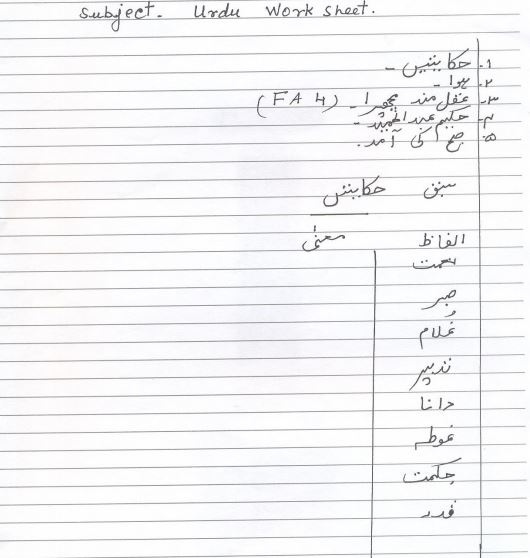 Subject. Urdu Work Sheet.
۱۔ حکایتیں ۔
۲۔ ہوا ۔
۳۔ عقل مند مچھیرا ۔ (FA 4)
۴۔ حکیم عبدالحمید ۔
۵۔ صبح کی آمد ۔
سبق حکایتیں
الفاظ معنی
نعمت
صبر
غُلام
تدبیر
دانا
غوطہ
حِکمت
قدر